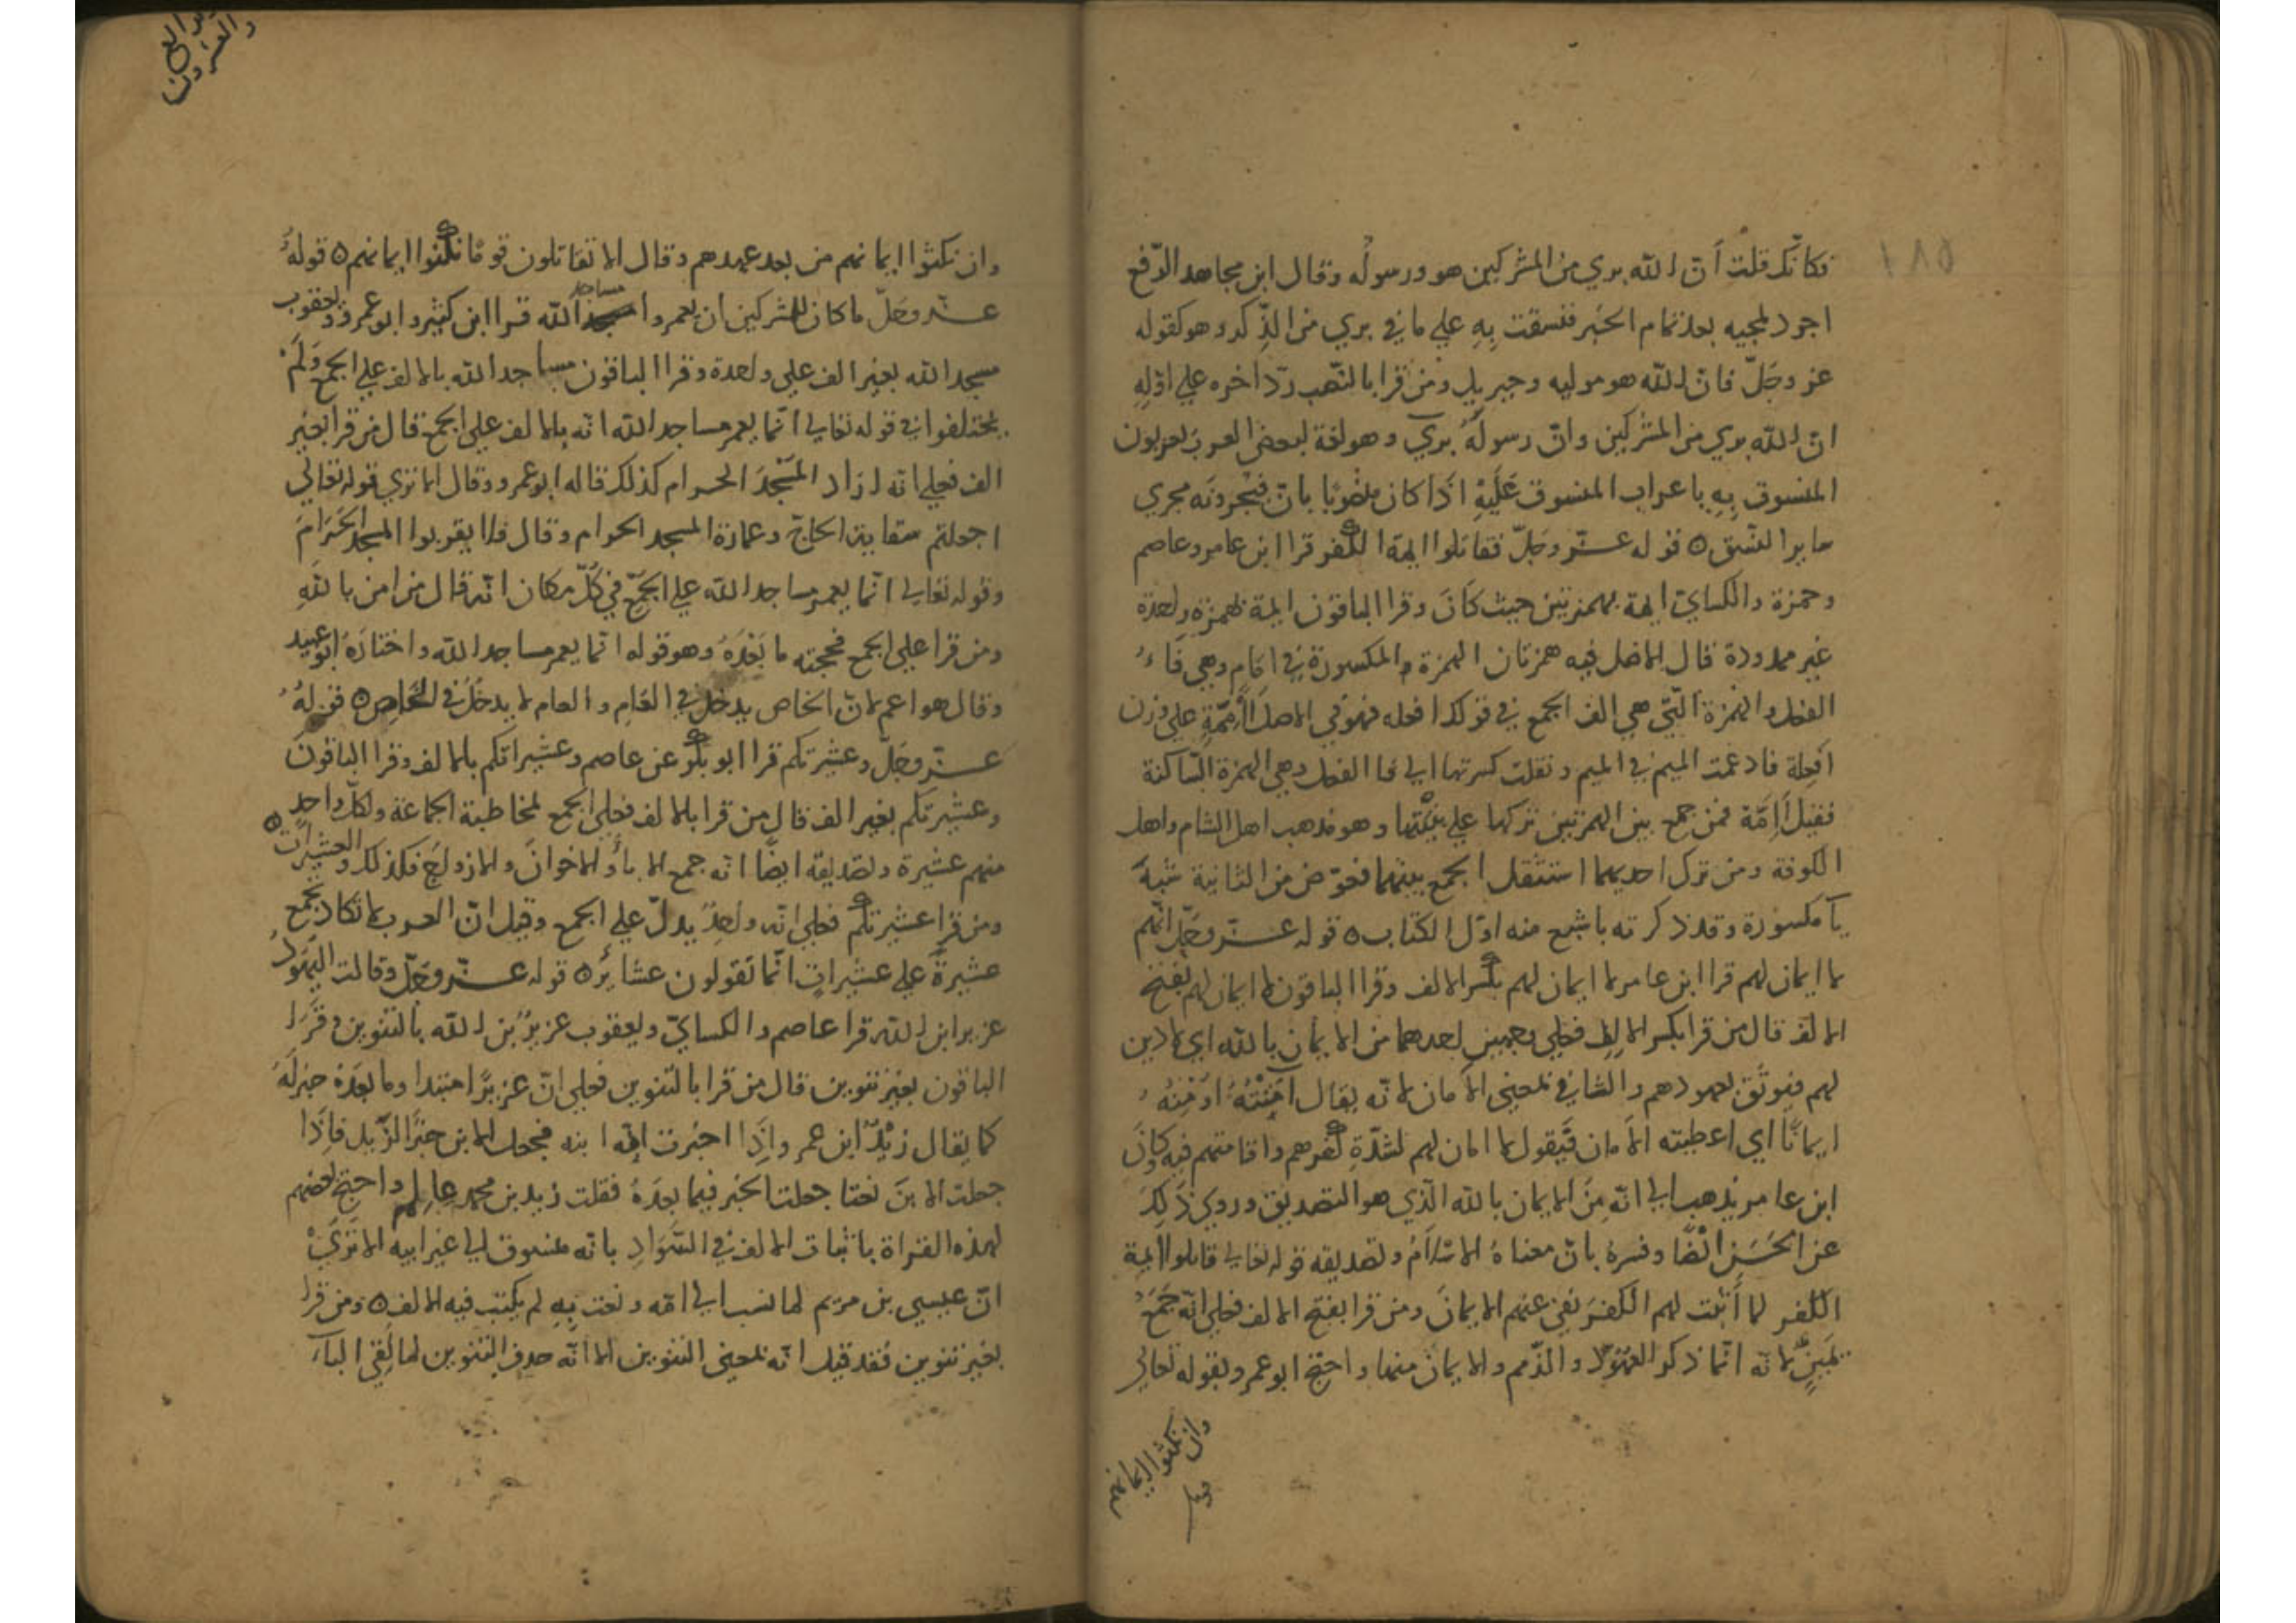 فكانّك قلت أنّ الله بري من المشركين هو ورسوله وقال ابن مجاهد الرّفع
اجود لمجيه بعد تمام الخبر فنسقت بِهِ علي ما في بري من الذّكر وهو كقوله
عز وجَلّ فانّ الله هو موليه وجبريل ومن قرا بالنّصب ردّ آخره علي اوّلِهِ
انّ الله بري من المشركين وانّ رسولَهُ بريٓ وهو لغة لبعض العرب يعربون
المنسوق بِهِ باعراب المنسوق عَلَيْهِ اذَا كان منصُوبًا بانّ فيُجرونَه مجري
ساير النسق ه قوله عزّ وجَلّ فقاتلوا ايمة الكفر قرا ابن عامر وعاصم
وحمزة والكسايّ ايمة بهمزتين حيث كَانَ وقرا الباقون ايمة بهمزة واحدة
غير ممدودة قال الاصل فيه همزتان الهمزة المكسورة في امَام وهي فَاءُ
الفعل والهمزة الّتي هي الف الجمع في قولك افعله فهو في الاصل أَأْمِمَةٍ علي وزن
افعِلة فادغمت الميم في الميم ونقلت كسرتها الي فا الفعل وهي الهمزة السّاكنة
فقيل أَاِمَّة فمن جمع بين الهمزتين تركها علي بِنْيَتها وهو مذهب اهل الشام واهل
الكوفة ومن ترك احديهما استثقل الجمع بينهما فعوّض من الثانية شبهَ
يآ مكسورة وقد ذكرته باشبع منه اوّل الكتاب ه قوله عزّ وجَلّ انّهم
لا ايمان لهم قرا ابن عامر لا ايمان لهم بكسر الالف وقرا الباقون لا ايمان لهم بفتح
الالف قال من قرا بكسر الالِف فعلي وجهين احدهما من الايمان بالله اي لا دين
لهم فيوثَق بعهودهم والثاني بمعني الامان لانّه يقَال آمَنْتُهُ اومِنُهُ
ايمانًا اي اعطيته الأمان فَيقول لا امان لهم لشدّةِ كفرهم واقامتهم فيه وكانَ
ابن عامر يذهب الي انّه مِنَ الايمان بالله الّذي هو التصديق وروي ذَلِكَ
عن الحَسَن ايضًا وفسرهُ بانّ معناهُ الاسْلَامُ وتصديقه قوله تعالي قاتلوا ايمة
الكفر لما أُثبت لهم الكفرَ نفي عنهم الايمانَ ومن قرا بفتح الالف فعلي انّه جَمْعُ
يَمِينٍ لانه انّما ذكر العهُود والذّمم والايمانَ منها واحتجّ ابو عمرو بقوله تعالي
وان نكثوا ايمانهم
وان نكثوا ايمانهم من بعد عهدهم وقال الا تقاتلون قومًا نكثوا ايمانهم ه قولهُ
عزّ وجَلّ ما كان للمشركين ان يعمروا مساجد الله قرا ابن كثير وابو عمرو ويعقوب
مسجد الله بغير الف علي واحدة وقرا الباقون مساجد الله بالالف علي الجمع وَلَمْ
يختلفوا في قوله تعالي انّما يعمر مساجد الله انّه بالالف علي الجمع قال من قرا بغير
الف فعلي انّه اراد المسْجدَ الحرام كذلك قاله ابو عمرو وقال الا تري قوله تعالي
اجعلتم سقاية الحاجّ وعمارة المسجد الحرام وقال فلا يقربوا المسجد الحَرَامَ
وقوله تعالي انّما يعمر مساجد الله علي الجَمْع في كُلّ مكان انّه قال من امن باللهِ
ومن قرا علي الجمع فحجته ما بَعْدَهُ وهو قوله انّما يعمر مساجد الله واختارَهُ ابو عبيد
وقال هو اعم لانّ الخاص يدخل في العَام والعام لا يدخُل في الخاص ه قولهُ
عزّ وجَلّ وعشيرتكم قرا ابو بكر عن عاصم وعشيراتكم بالالف وقرا الباقونَ
وعشيرتكم بغير الف قال من قرا بالالف فعلي الجمع لمخاطبة الجماعة ولكلّ واحدٍ
منهم عشيرة وتصديقه ايضًا انّه جمع الابأ والاخوانَ والازواجَ فكذلك والعشيرات ه
ومن قرا عشيرتكم فعلي انّه واحِدٌ يدلّ علي الجمع وقيل انّ العرب لا تكاد تجمع
عشيرةً علي عشيراتٍ انّما تقولون عشايرُ ه قوله عزّ وجَلّ وقالت اليَهُودُ
عزير ابن الله قرا عاصم والكسايّ ويعقوب عزيرٌ بن الله بالتنوين وقَرَا
الباقون بغير تنوين قال من قرا بالتنوين فعلي انّ عزيرًا مبتدا وما بعده خبر لَهُ
كما يقال زيْدٌ ابن عمر واِذَا اخبرت انّه ابنه فجعل الابن خبرًا لزَيد فاِذَا
جعلت الابنَ نعتا جعلت الخبر فيما بعدَهُ فقلت زيد بن محمد عالم واحتج بعضهم
لهذه القراة باثبات الالف في السَّوَادِ بانّه منسوق الي غير ابيه الا تَرَيْ
انّ عيسي بن مريم لما نسب الي امّه ونعت بِهِ لم يكتب فيه الالف ه ومن قرا
بغير تنوين فقد قيل انّه بمعني التنوين الا انّه حذف التنوين لما لقي البآء